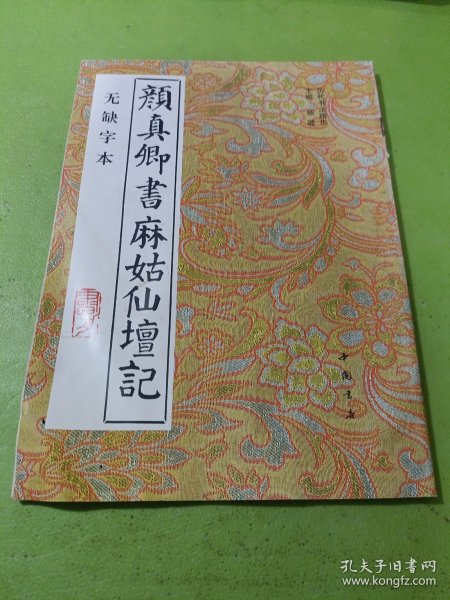 顔真卿書麻姑仙壇記
无缺字本
中国书店
孔夫子旧书网
www.kongfz.com